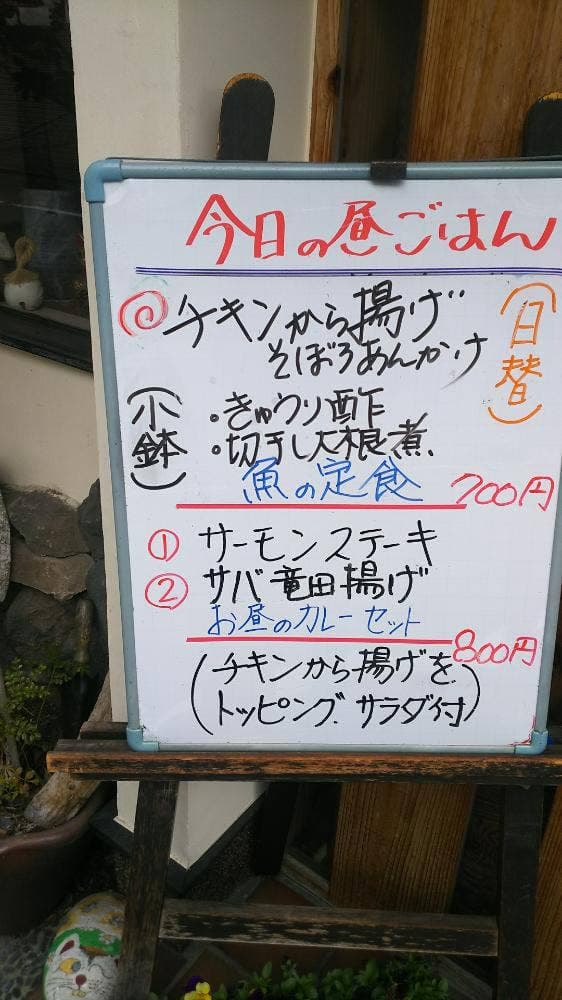 今日の昼ごはん
チキンから揚げ
そぼろあんかけ
(日替)
(小鉢)
・きゅうり酢
・切干し大根煮
魚の定食 700円
① サーモンステーキ
② サバ竜田揚げ
お昼のカレーセット 800円
(チキンから揚げを
トッピング、サラダ付)